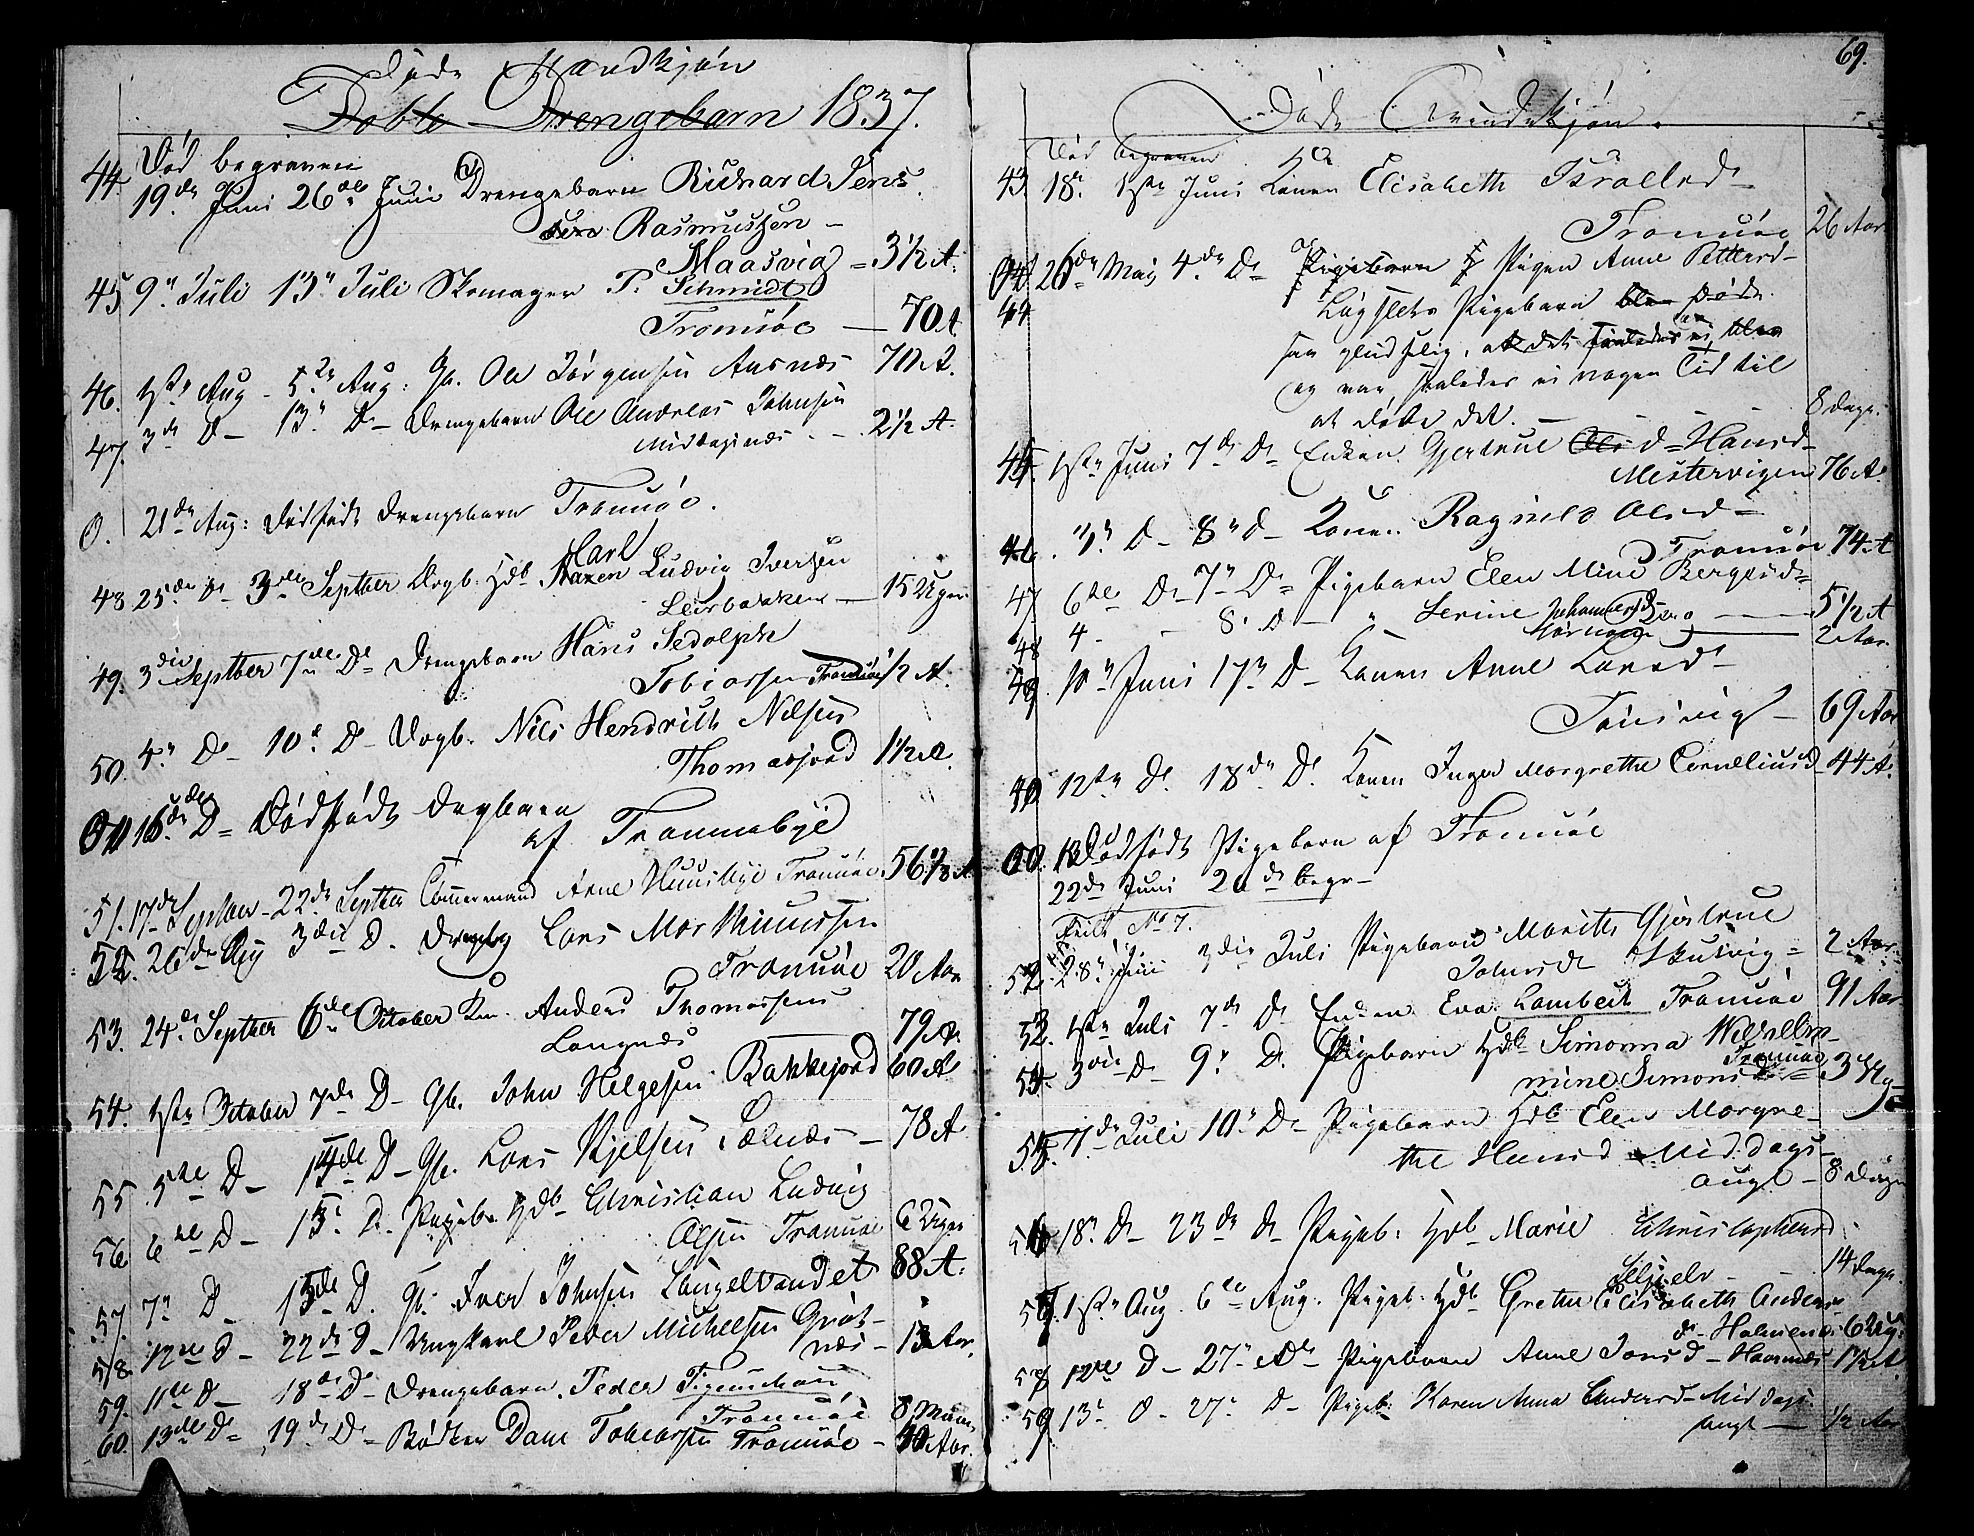 Døde Mandkjøn
Døbte Drengebarn 1837.
Død begraven
44. 19de Juni 26de Juni Drengebarn Richard Jens
Rasmussen
Maasvig 3½ A.
45 9" Juli 13" Juli Skomager P. Schmidt
Tromsøe 70 A
46. 1ste Aug 5te Aug: Gb. Ole Jørgensen Aarnæs 70 A.
47. 3de D 13" D Drengebarn Ole Andreas Johnsen
Middagsnæs 2½ A.
0. 21de Aug: Dødfødt Drengebarn Tromsøe.
Carl
48 25de D 3die Septber Drgb. Hdb Ludvig Iversen
Leerbakken 15 Uger
49. 3die Septber 7de D Drengebarn Hans Sedolph
Tobiassen Tromsøe ½ A.
50. 4" D 10de D Drgb. Nils Hendrich Nilsen
Thomasjord 1½ A.
0 16de D Dødfødt Drgbarn
af Tromsøbye
51. 17de Septber 22de Septber Tømmermand Arne Huusbye Tromsøe 56 A
52. 26de Aug 3die D. Lars Morthinussen
Tromsøe 20 Aar
53. 24de Septber 6de October Anders Thomassen
Langnæs 79 A.
54. 1ste October 7de D Gb. John Helgesen Bakkejord 60 A
55 5te D 14de D Gb. Lars Kjelsen Sælnæs 78 A
56 6te D 15 D. Hdb Christian Ludvig
Olsen Tromsøe 6 Uger
57. 7" D 15de D. Gb. Iver Johnsen Langelvandet 88 A.
58. 12te D 22de D Ungkarl Peder Michelsen Grøt-
næs 13 Aar.
59. 11te D 18de D Drengebarn Peder Figenschau
Tromsøe 8 Maan
60. 13de D 19de D Bødker Dane Tobiassen Tromsøe 40 Aar.
69.
Døde Qvindekjøn.
Død begraven
43. 18de 1ste Juni Konen Elisabeth Israelsd
Tromsøe 26 Aar
44 26de Mai 4de D Pigebarn Pigen Anne Pettersd
Pigebarn blev Døde
saa at det saaledes ei blev
og var saaledes ei nogen Tid til
at døbe det. 8 dage.
45. 1ste Juni 7de D Enken Gjertrud Olsd Hansd
Mestervigen 76 A
46. 1" D 8" D Konen Ragnild Olsd
Tromsøe 74 A
47 6te D 7" D Pigebarn Elen Mine Bergesd
48 4 8. D " Serine Johannesd 5½ A
2 Aar.
49. 10" Juni 17" D Konen Anne Larsd
Tønsvig 69 Aar
12te D. 18de D. Konen Inger Margrethe Corneliusd 44 A.
Dødfødt Pigebarn af Tromsøe
22de Juni begr
Feilt No 7.
28" Juni 3die Juli Pigebarn Marith Gjertrue
Johnsd Skulvig 2 Aar.
52. 1ste Juli 7de D Enken Eva Lambech Tromsøe 91 Aar
3die D 9" D. Pigebarn Hdb Simonna Wilhel-
mine Simonsd Tromsøe 3 Ug
7de Juli 10" D Pigebarn Hdb Elen Margre-
the Hansd Middags-
8 Dage
18" D 23de D Pigeb. Hdb Marie Christophersd
14 dage
1ste Aug. 6te Aug. Pigeb. Hdb Grethe Elisabeth Anders
d Holmen 6 Ug.
12te D 27" D Pigebarn Anne Jonsd Haarnæs 1½ A.
59 13" D 27" D Pigeb. Karen Anna Andersd Middags
½ Aar